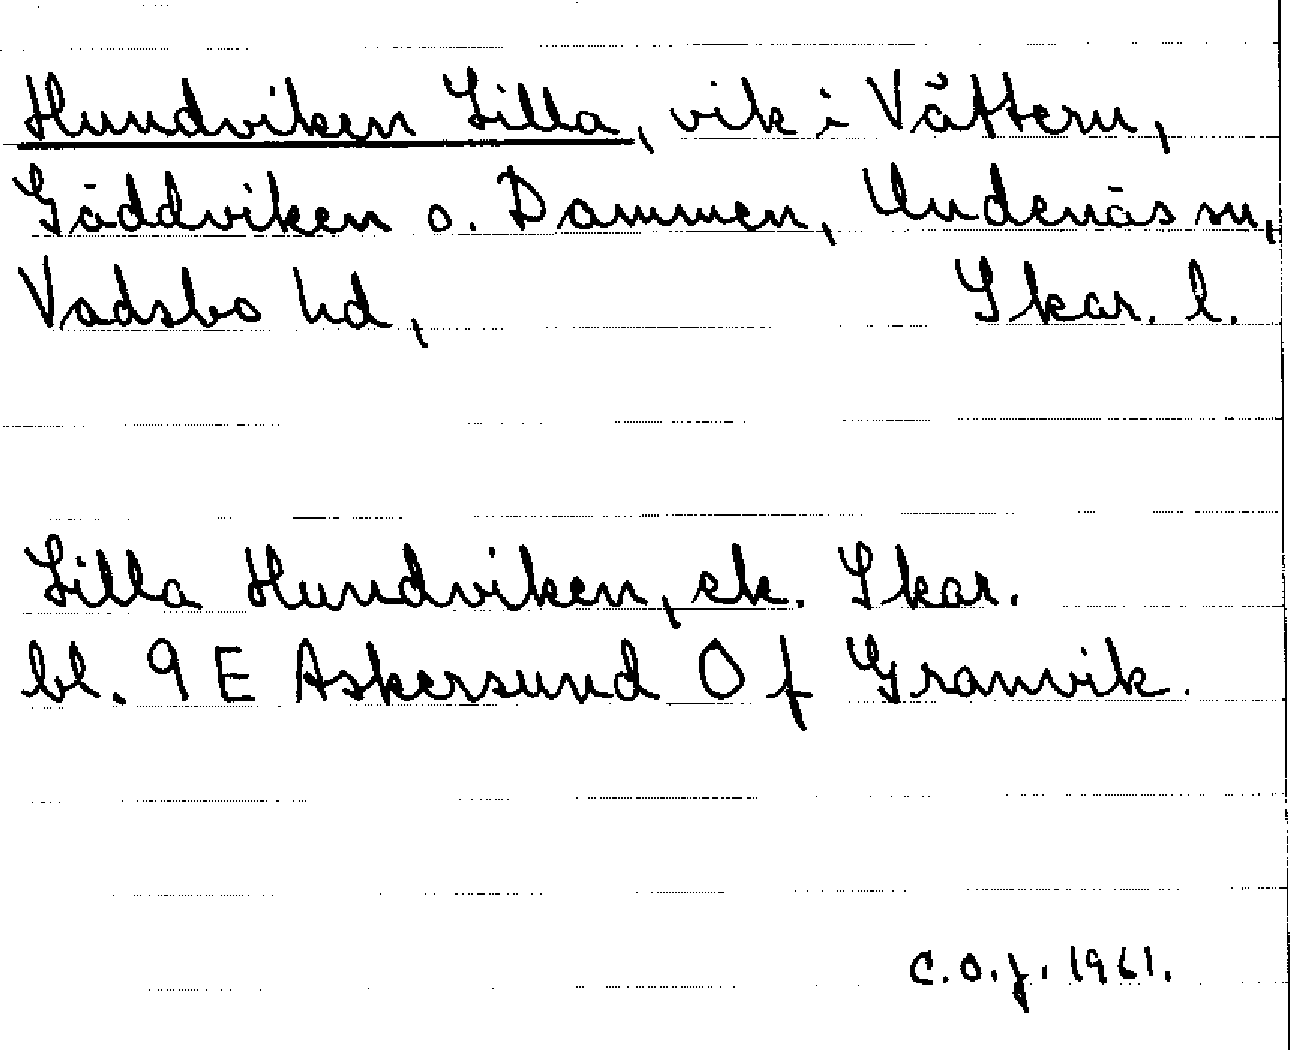 Hundviken Lilla, vik i Vättern,
Gäddviken o. Dammen, Undenäs sn,
Vadsbo hd, Skar. l.
Lilla Hundviken, ek. Skar.
bl. 9 E Askersund O f Granvik.
C.O.J. 1961.